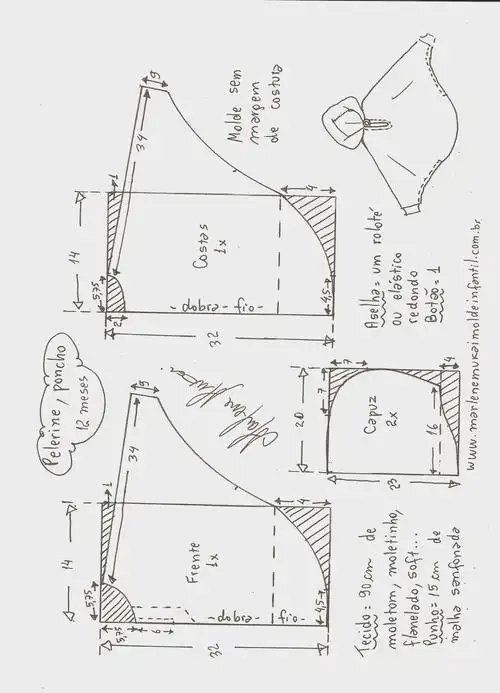 Pelerine, poncho
12 meses
Molde sem
margem
de costura
9
34
1
14
5,75
2
Costas
1x
4
4,5
dobra - fio
32
9
34
1
14
5,75
5,75
6
Frente
1x
4
4,5
dobra - fio
32
Marlene Mukai
Aselha = um roloté
ou elástico
redondo
Botão = 1
7
7
20
Capuz
2x
16
4
23
Tecido = 90 cm de
moletom, moletinho,
flanelado, soft...
Punho = 15 cm de
malha sanfonada
www.marlenemukaimoldeinfantil.com.br